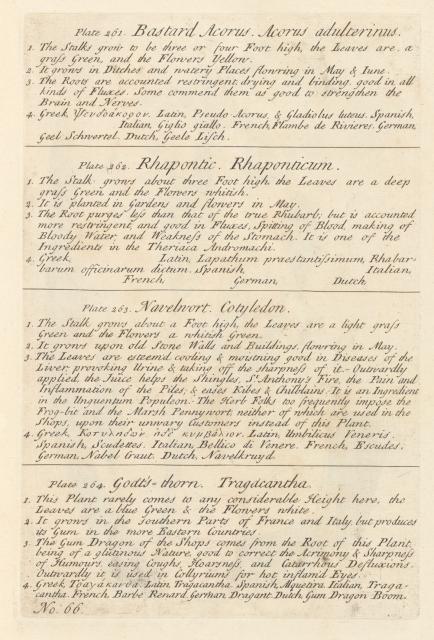 Plate 261. Bastard Acorus. Acorus adulterinus.
1. The Stalks grow to be three or four Foot high, the Leaves are a
grass Green, and the Flowers Yellow.
2. It grows in Ditches and watery Places flowring in May & Iune.
3. The Roots are accounted restringent, drying and binding, good in all
kinds of Fluxes. Some commend them as good to strengthen the
Brain and Nerves.
4. Greek, Ψευδάκορον. Latin, Pseudo Acorus & Gladiolus luteus. Spanish,
Italian, Giglio giallo. French, Flambe de Rivieres. German,
Geel Schwertel. Dutch, Geele Lisch.
Plate 262. Rhapontic. Rhaponticum.
1. The Stalk grows about three Foot high, the Leaves are a deep
grass Green and the Flowers whitish.
2. It is planted in Gardens and flowers in May.
3. The Root purges less than that of the true Rhubarb; but is accounted
more restringent, and good in Fluxes, Spitting of Blood, making of
Bloody Water and Weakness of the Stomach. It is one of the
Ingredients in the Theriaca Andromachi.
4. Greek, Latin, Lapathum praestantissimum, Rhabar-
barum officinarum dictum. Spanish, Italian,
French, German, Dutch,
Plate 263. Navelwort. Cotyledon.
1. The Stalk grows about a Foot high, the Leaves are a light grass
Green and the Flowers a whitish Green.
2. It grows upon old Stone Walls and Buildings, flowring in May.
3. The Leaves are esteem'd cooling & moistning good in Diseases of the
Liver, provoking Urine & taking off the sharpness of it. Outwardly
applied, the Juice helps the Shingles, St. Anthony's Fire, the Pain and
Inflammation of the Piles, & eases Kibes & Chilblains. It is an Ingredient
in the Unguentum Populeon. The Herb Folks too frequently impose the
Frog-bit and the Marsh Pennywort, neither of which are used in the
Shops, upon their unwary Customers instead of this Plant.
4. Greek, Κοτυληδών Latin, Umbilicus Veneris.
Spanish, Scudettes. Italian, Bellico di Venere. French, Escudes.
German, Nabel kraut. Dutch, Navelkruyd.
Plate 264. Goats-thorn. Tragacantha.
1. This Plant rarely comes to any considerable Height here, the
Leaves are a blue Green & the Flowers white.
2. It grows in the Southern Parts of France and Italy but produces
its Gum in the more Eastern Countries.
3. The Gum Dragon of the Shops comes from the Root of this Plant,
being of a glutinous Nature, good to correct the Acrimony & Sharpness
of Humours, easing Coughs, Hoarsness, and Catarrhous Defluxions.
Outwardly it is used in Collyriums for hot inflam'd Eyes.
4. Greek, Τραγάκανθα. Latin, Tragacantha. Spanish, Alquetira. Italian, Traga-
cantha. French, Barbe Renard. German, Dragant. Dutch, Gum Dragon Boom.
No. 66